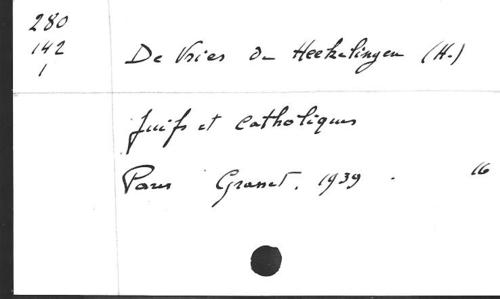 280
142
1
De Vries de Heekelingen (H.)
Juifs et Catholiques
Paris Grasset. 1939. 16